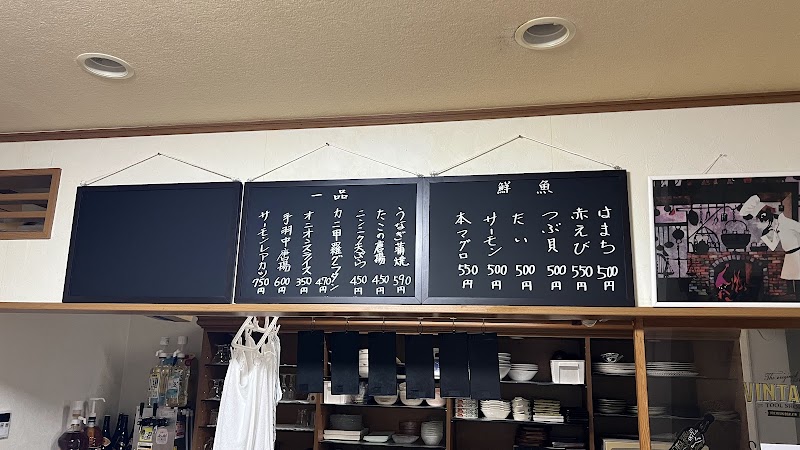 鮮魚
はまち 500円
赤えび 550円
つぶ貝 500円
たい 500円
サーモン 500円
本マグロ 550円
一品
うなぎ蒲焼 590円
たこの唐揚 450円
ニンニク天ぷら 450円
カニ甲羅グラタン 470円
オニオンスライス 350円
手羽中唐揚 600円
サーモンレアカツ 750円
The original
VINTA
TOOL